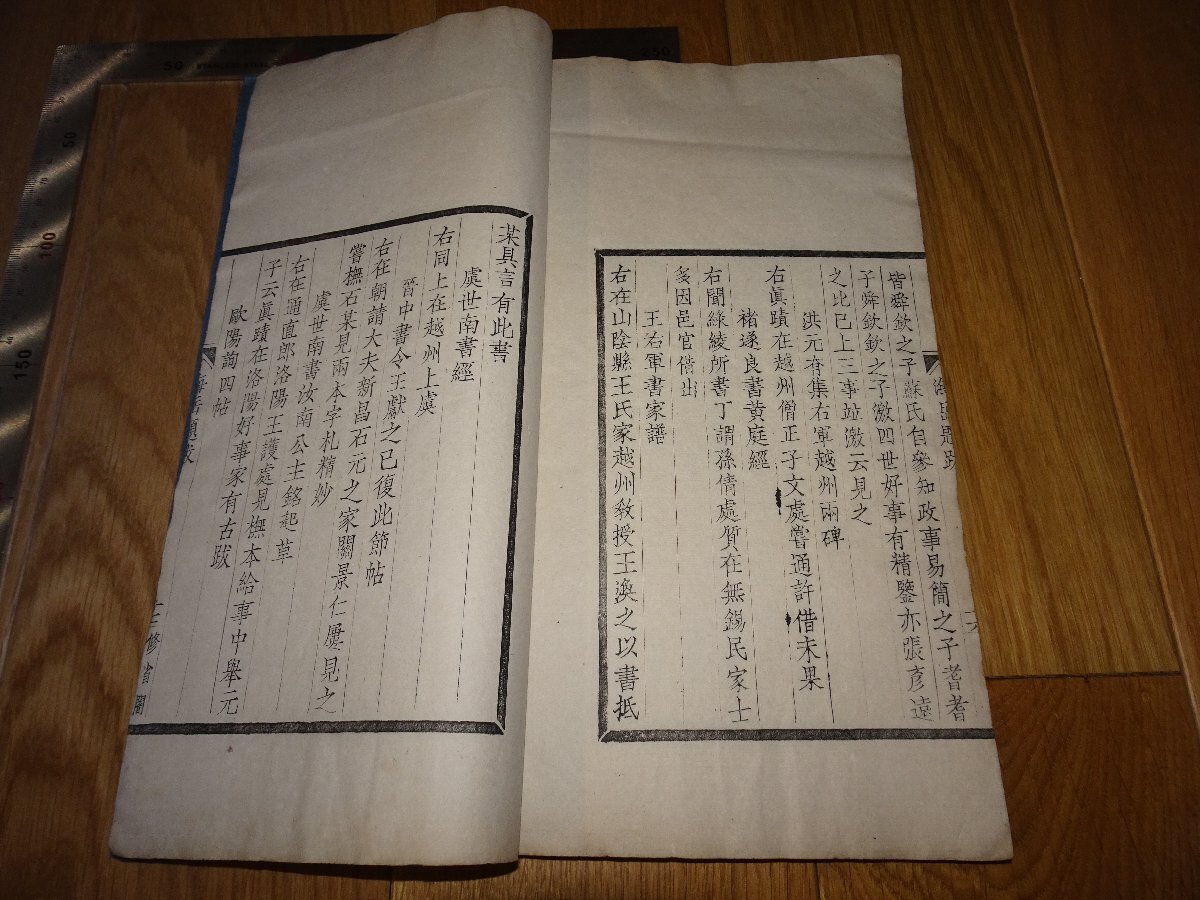 皆舜欽之子蘇氏自參知政事易簡之子耆耆
子舜欽欽之子激四世好事有精鑒亦張彥遠
之比已上三事竝激云見之
洪元眘集右軍越州兩碑
右眞蹟在越州僧正子文處嘗通許借未果
褚遂良書黃庭經
右聞綠綾所書丁謂孫倩處質在無錫民家士
多因邑官借出
王右軍書家譜
右在山陰縣王氏家越州敎授王渙之以書抵
某具言有此書
虞世南書經
右同上在越州上虞
晉中書令王獻之已復此節帖
右在朝請大夫新昌石元之家關景仁屢見之
嘗撫石某見兩本字札精妙
虞世南書汝南公主銘起草
右在通直郎洛陽王護處見橅本給事中舉元
子云眞蹟在洛陽好事家有古跋
歐陽詢四帖
海岳題跋
修省閣
50
STAINLESS STEEL
250
50
100
150